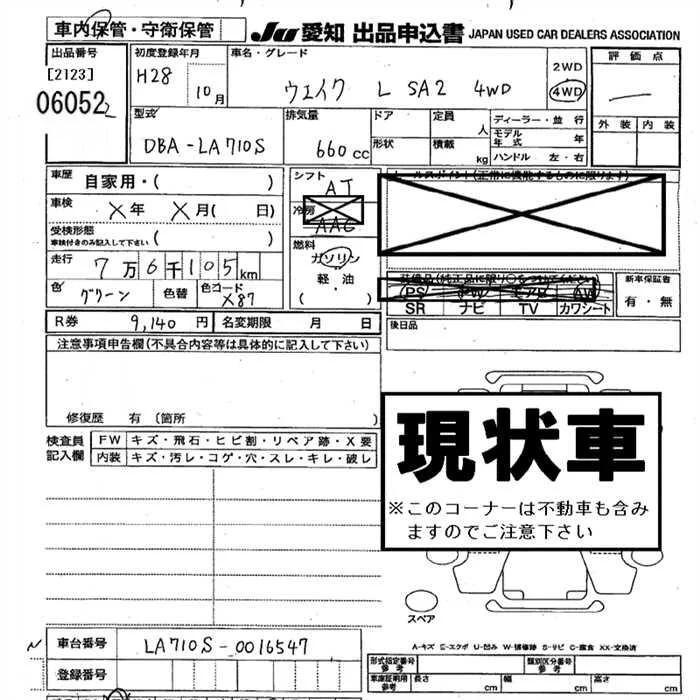 車内保管・守衛保管
JU 愛知 出品申込書 JAPAN USED CAR DEALERS ASSOCIATION
出品番号 初度登録年月 車名・グレード 2WD 評価点
[2123] H28 10月 ウェイク L SA2 4WD 4WD
06052 型式 排気量 ドア 定員 人 ディーラー・並行 外装 内装
DBA-LA710S 660cc 形状 積載 kg モデル年式 年
ハンドル 左・右
車歴 自家用・( ) シフト AT セールスポイント(正常に機能するものに限ります)
車検 X年 X月( 日) 冷房 AAC
受検形態 車検付きのみ記入して下さい ( ) 燃料
走行 7万6千105km ガソリン
軽・油
・
( )
色 グリーン 色替 色コード X87
装備品(純正品に限り○をつけてください) 新車保証書
PS PW エアB AW 有・無
SR ナビ TV カワシート
R券 9,140円 名変期限 月 日 後日品
注意事項申告欄(不具合内容等は具体的に記入して下さい)
修復歴 有 〔箇所 )
検査員記入欄 FW キズ・飛石・ヒビ割・リペア跡・X要
内装 キズ・汚レ・コゲ・穴・スレ・キレ・破レ
現状車
※このコーナーは不動車も含み
ますのでご注意下さい
スペア
A-キズ E-エクボ U-凹み W-補修跡 S-サビ C-腐食 XX-交換済
車台番号 LA710S-0016547 形式指定番号 参考 類別区分番号 参考
登録番号 車庫証明用 参考 長さ cm 幅 cm 高さ cm